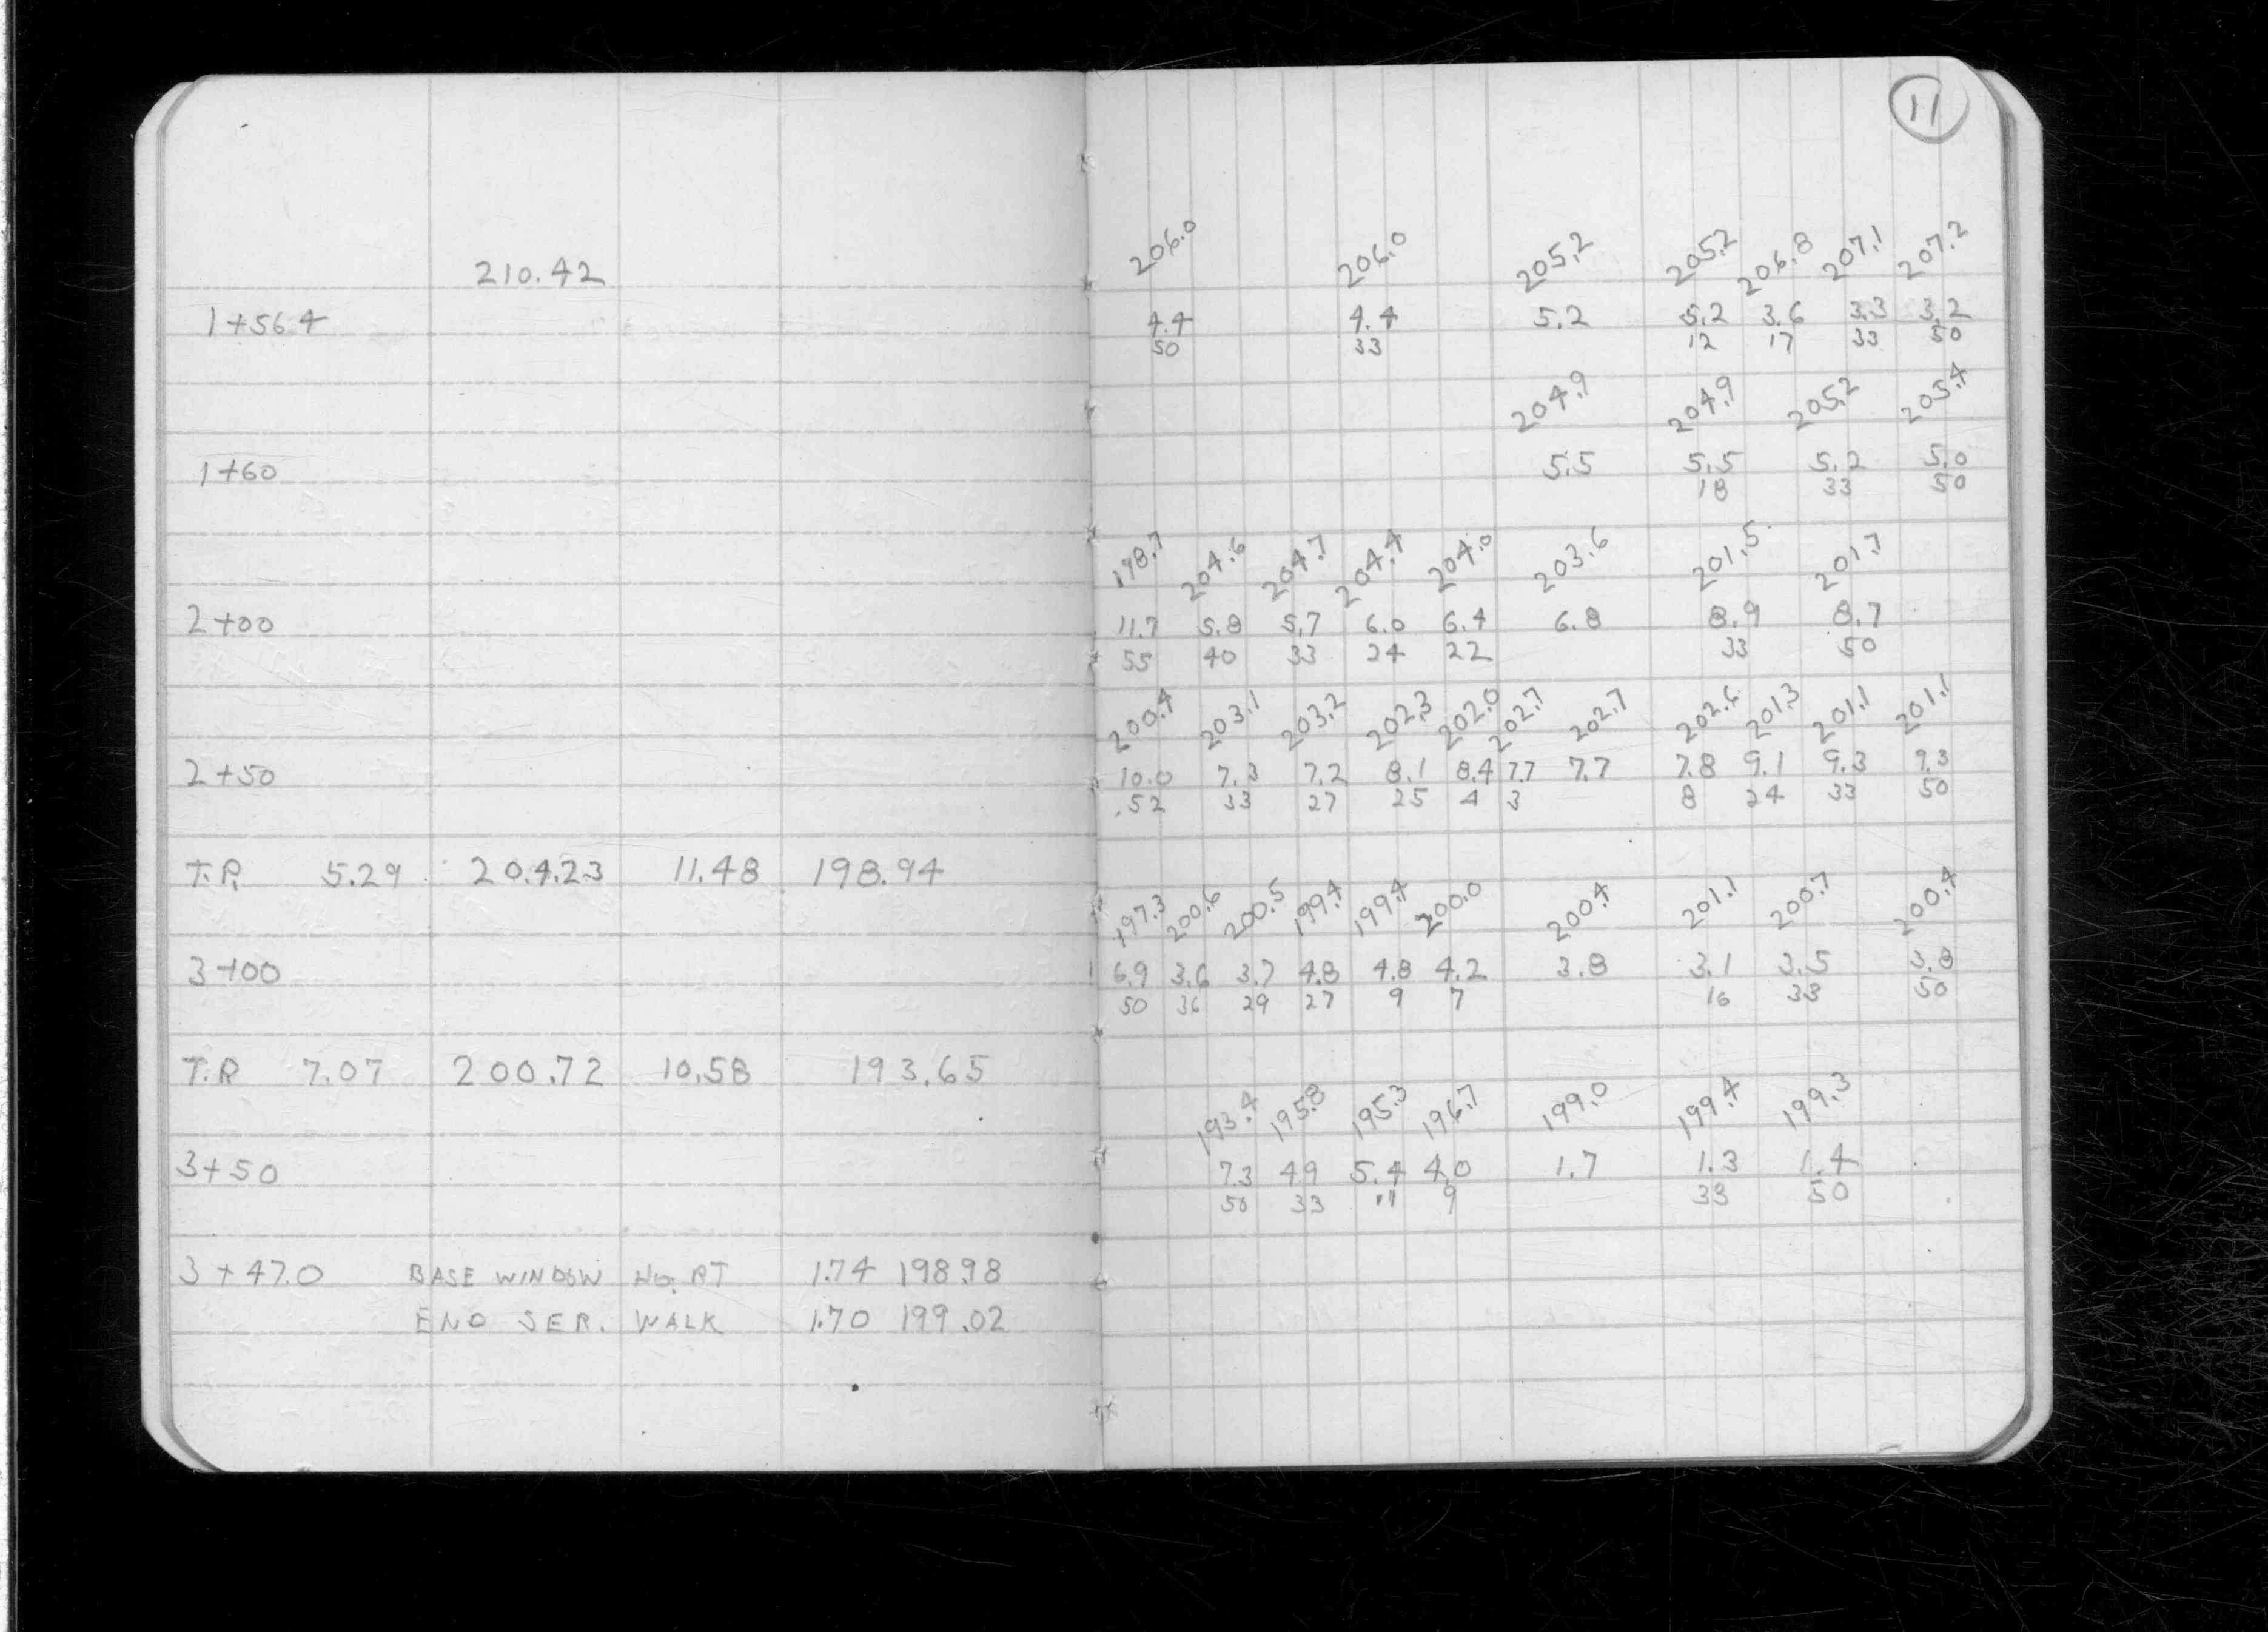 11
210.42
206.0 206.0 205.2 205.2 206.8 207.1 207.2
1+56.4 4.4 4.4 5.2 5.2 3.6 3.3 3.2
50 33 12 17 33 50
204.9 204.9 205.2 205.4
1+60 5.5 5.5 5.2 5.0
18 33 50
198.7 204.6 204.7 204.4 204.0 203.6 201.5 201.7
2+00 11.7 5.8 5.7 6.0 6.4 6.8 8.9 8.7
55 40 33 24 22 33 50
200.4 203.1 203.2 202.3 202.0 202.7 202.7 202.6 201.3 201.1 201.1
2+50 10.0 7.3 7.2 8.1 8.4 7.7 7.7 7.8 9.1 9.3 9.3
52 33 27 25 4 3 8 24 33 50
T.P. 5.29 204.23 11.48 198.94
197.3 200.6 200.5 199.4 199.4 200.0 200.4 201.1 200.7 200.4
3+00 6.9 3.6 3.7 4.8 4.8 4.2 3.8 3.1 3.5 3.8
50 36 29 27 9 7 16 33 50
T.P 7.07 200.72 10.58 193.65
193.4 195.8 195.3 196.7 199.0 199.4 199.3
3+50 7.3 4.9 5.4 4.0 1.7 1.3 1.4
50 33 11 9 33 50
3+47.0 BASE WINDOW No. RT 1.74 198.98
END SER. WALK 1.70 199.02